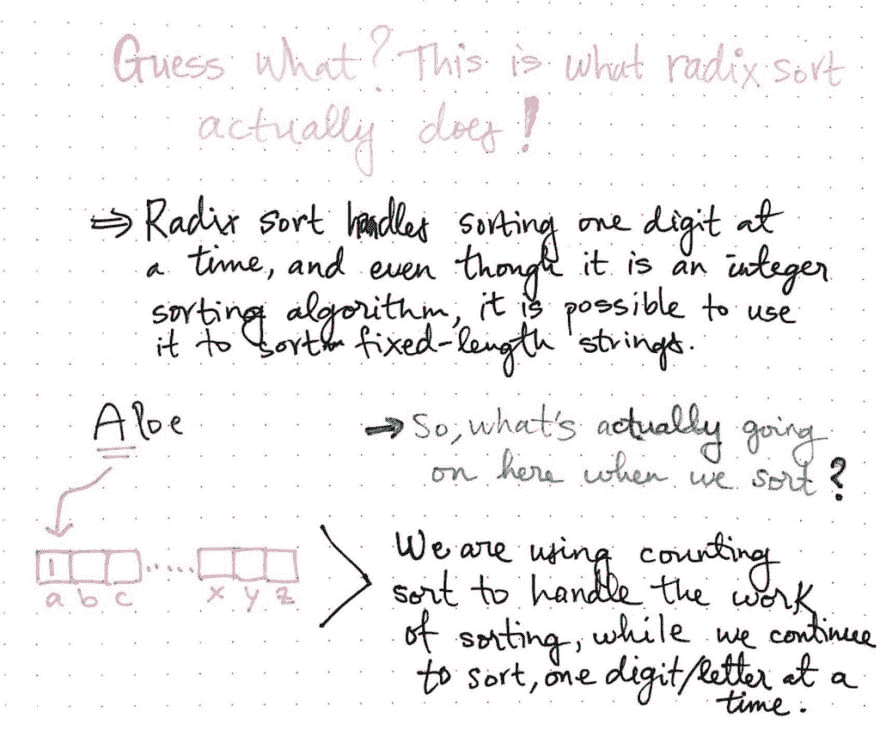 Guess what? This is what radix sort
actually does!
⇒ Radix sort handles sorting one digit at
a time, and even though it is an integer
sorting algorithm, it is possible to use
it to sort fixed-length strings.
Aloe
→ So, what's actually going
on here when we sort?
1 ......
a b c x y z
We are using counting
sort to handle the work
of sorting, while we continue
to sort, one digit/letter at a
time.